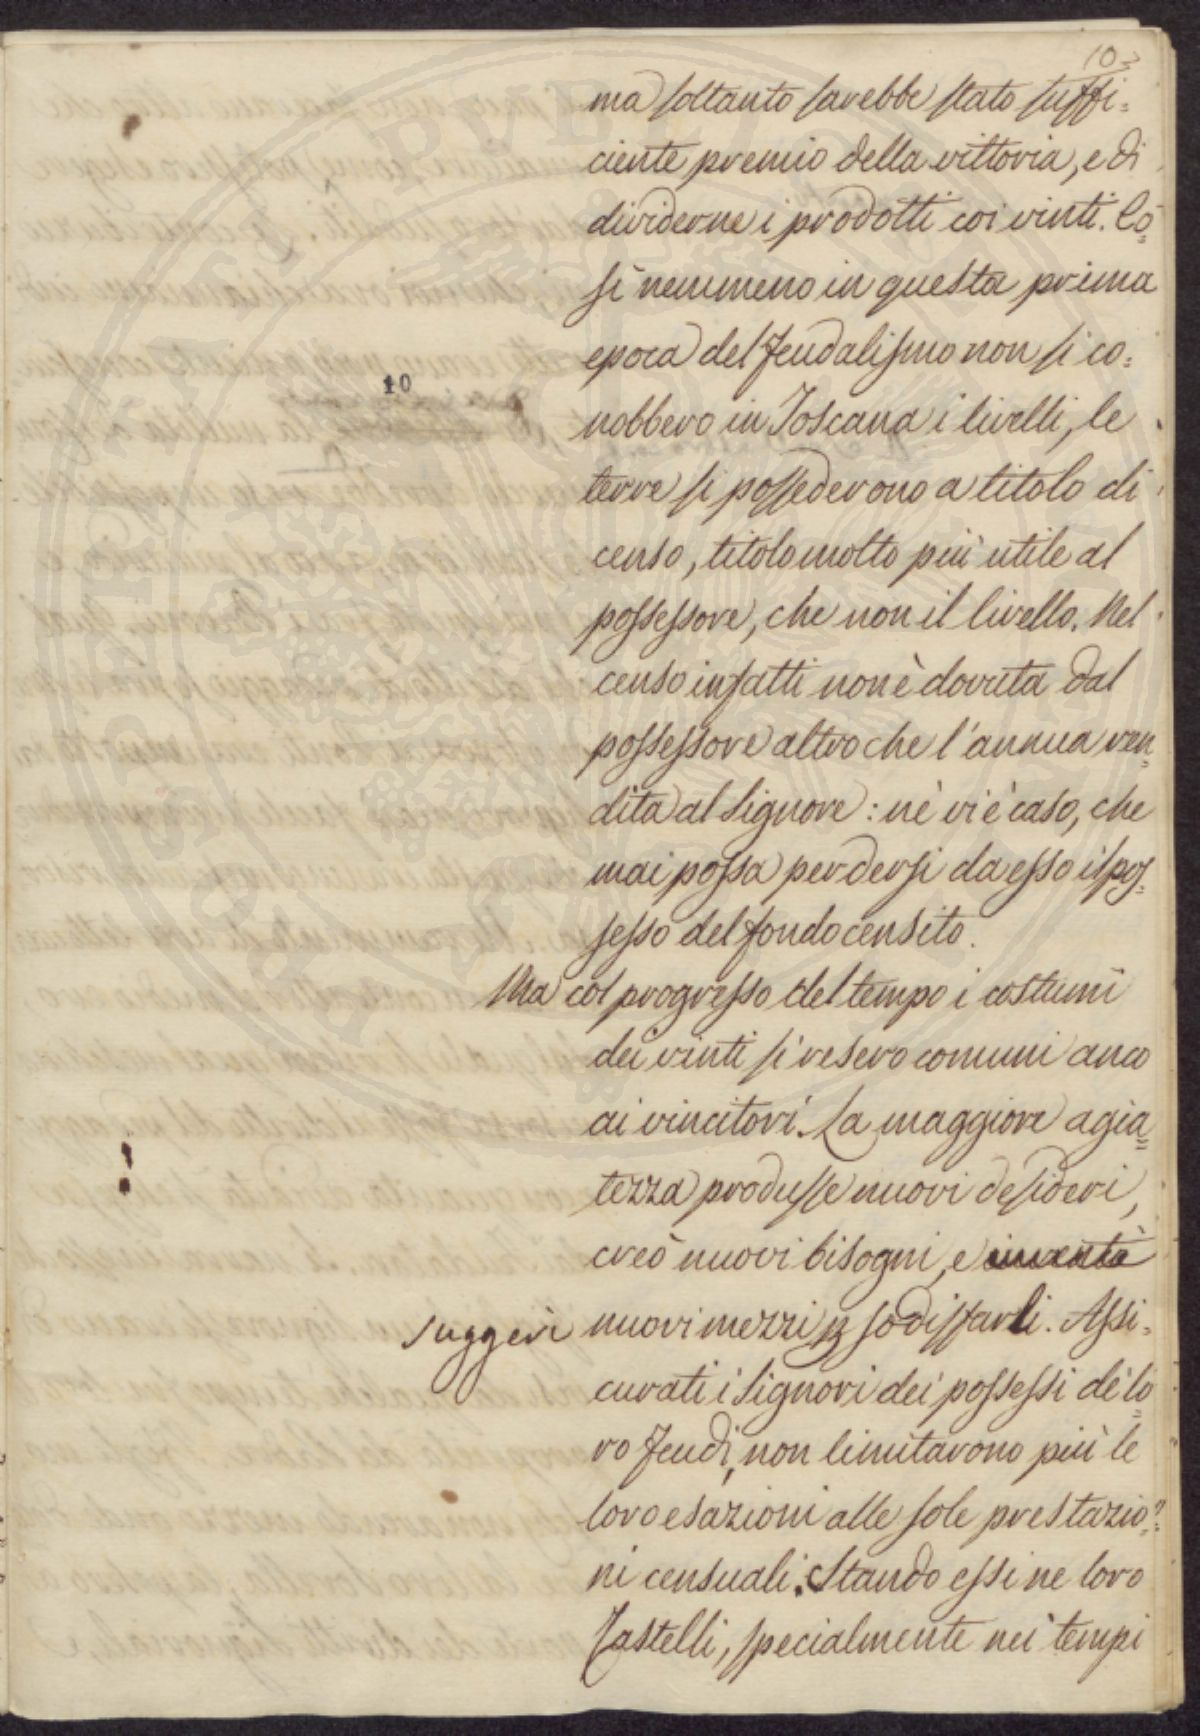 10
ma soltanto sarebbe stato suffi=
ciente premio della vittoria, e di
dividerne i prodotti coi vinti. Co=
sì nemmeno in questa prima
epoca del feudalismo non si co=
10
nobbero in Toscana i livelli, le
terre si possederono a titolo di
censo, titolo molto più utile al
possessore, che non il livello. Nel
censo infatti non è dovuta dal
possessore altro che l'annua ren=
dita al Signore: nè vi è caso, che
mai possa perdersi da esso il pos=
sesso del fondo censito.
Ma col progresso del tempo i costumi
dei vinti si resero comuni anco
ai vincitori. La maggiore agia=
tezza produsse nuovi desideri,
creò nuovi bisogni, e inventò
suggerì nuovi mezzi p sodisfarli. Assi=
curati i Signori dei possessi de' lo=
ro feudi, non limitarono più le
loro esazioni alle sole prestazio=
ni censuali. Stando essi ne loro
Castelli, specialmente nei tempi